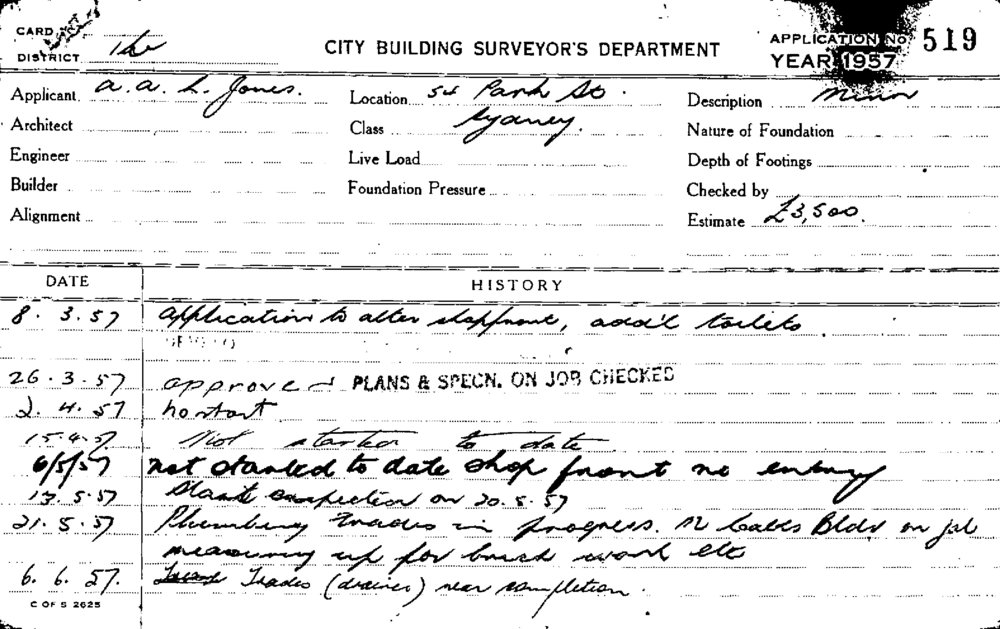 CARD
DISTRICT
CITY BUILDING SURVEYOR'S DEPARTMENT
APPLICATION No. 519
YEAR 1957
Applicant A. A. L. Jones.
Location 54 Park St.
Description Minor
Architect
Class Sydney.
Nature of Foundation
Engineer
Live Load
Depth of Footings
Builder
Foundation Pressure
Checked by
Alignment
Estimate £3,500.
DATE HISTORY
8. 3. 57 Application to alter shopfront, add'l toilets.
26. 3. 57 approved PLANS & SPECN. ON JOB CHECKED
2. 4. 57 no start
15. 4. 57 Not started to date
6/5/57 not started to date shop front no entry
17. 5. 57 inspection on 20. 5. 57
21. 5. 57 Plumbing Trades in progress. Bldr on job
measuring up for brick work etc
6. 6. 57. Trades (drainer) near completion.
C OF S 2625